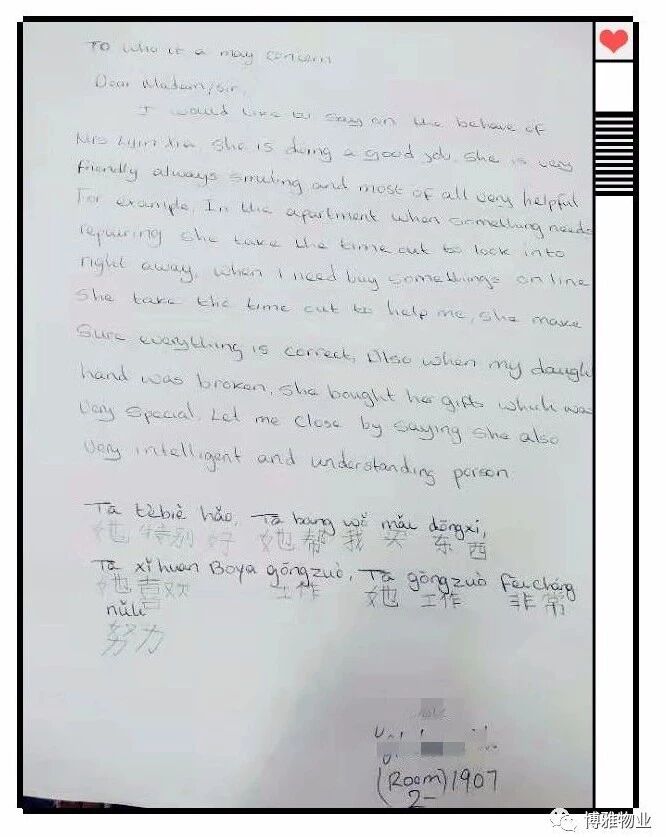 To who it a may concern
Dear Madam/sir,
I would like to say on the behave of
Mrs Lyiri Xia. She is doing a good job. she is very
friendly always smiling and most of all very helpful
For example, In the apartment when something needs
repairing she take the time out to look into
right away. when I need buy somethings on line
she take the time out to help me, she make
Sure everything is correct. Also when my daugh
hand was broken, she bought her gifts which was
very special. Let me close by saying she also
very intelligent and understanding person
Tā tèbié hǎo, Tā bang wǒ mǎi dōngxi,
她 特别 好 她 帮 我 买 东 西
Tā xǐhuan Boya gōngzuò, Tā gōngzuò fēicháng
她 喜欢 工作 她 工作 非常
nǔlì
努力
(Room) 1907
2-
博雅物业